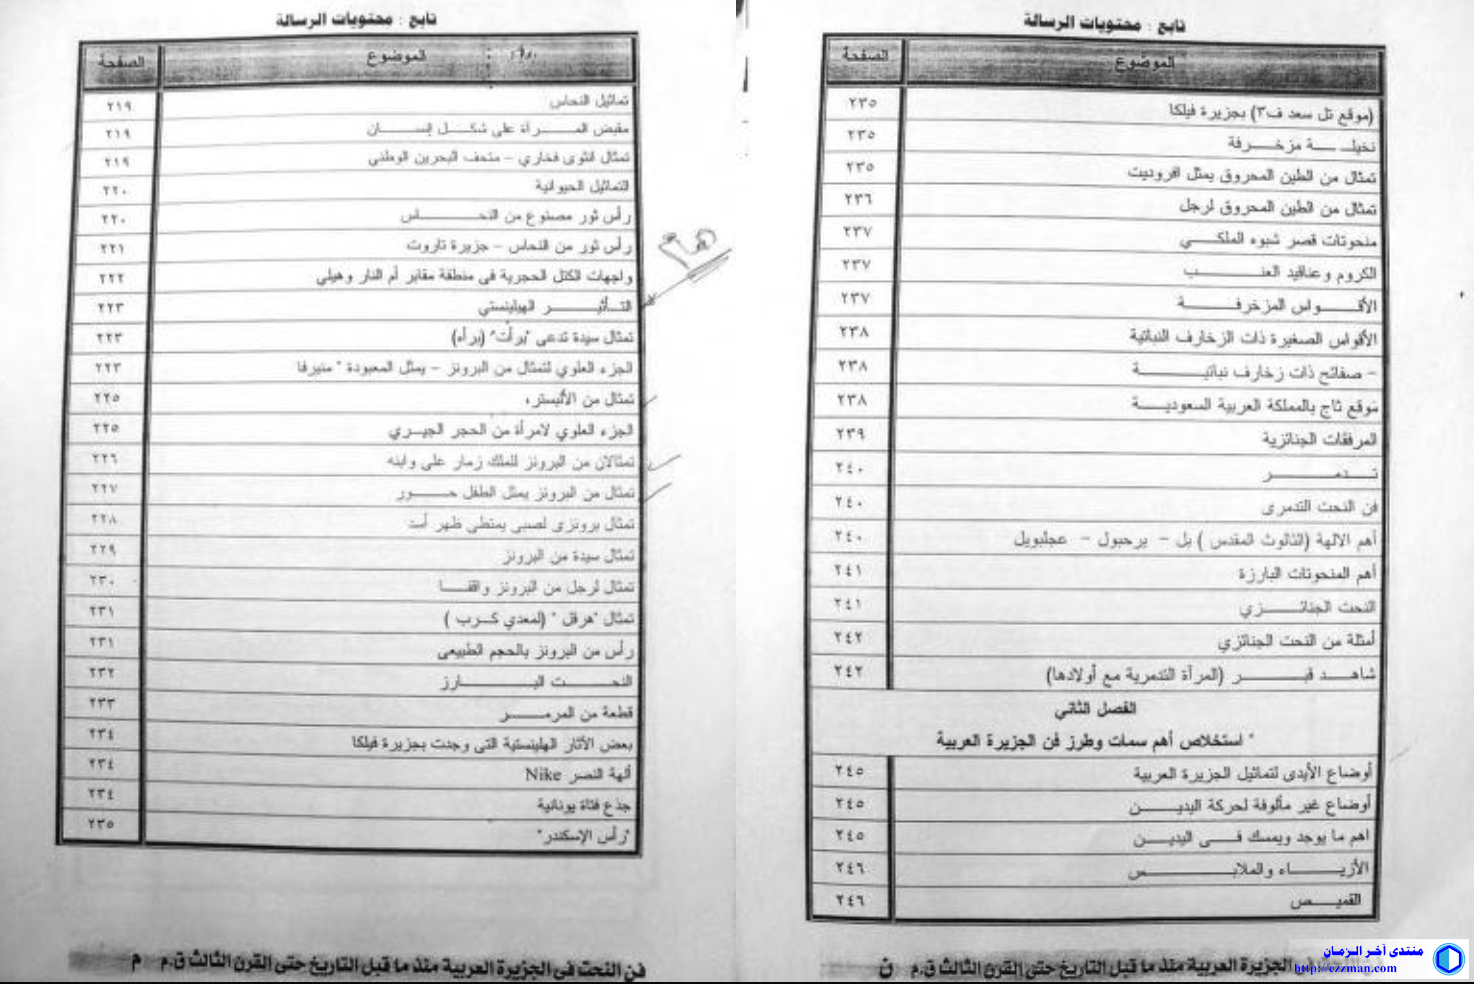 تابع : محتويات الرسالة
الموضوع الصفحة
تماثيل النحاس ٢١٩
مقبض المـــرأة على شكـــل إنســـان ٢١٩
تمثال انثوى فخاري – متحف البحرين الوطني ٢١٩
التماثيل الحيوانية ٢٢٠
رأس ثور مصنوع من النحـــاس ٢٢٠
رأس ثور من النحاس – جزيرة تاروت ٢٢١
واجهات الكتل الحجرية فى منطقة مقابر أم النار وهيلي ٢٢٢
التـــأثيـــر الهيلينستي ٢٢٣
تمثال سيدة تدعى "برأت" (برأه) ٢٢٣
الجزء العلوي لتمثال من البرونز – يمثل المعبودة " منيرفا ٢٢٣
تمثال من الألبستر، ٢٢٥
الجزء العلوي لامرأة من الحجر الجيـــري ٢٢٥
تمثالان من البرونز للملك زمار على وابنه ٢٢٦
تمثال من البرونز يمثل الطفل حـــور ٢٢٧
تمثال برونزى لصبى يمتطى ظهر أسد ٢٢٨
تمثال سيدة من البرونز ٢٢٩
تمثال لرجل من البرونز واقفـــا ٢٣٠
تمثال "هرقل " (لمعدي كـــرب ) ٢٣١
رأس من البرونز بالحجم الطبيعى ٢٣١
النحـــت البـــارز ٢٣٢
قطعة من المرمـــر ٢٣٣
بعض الآثار الهلينستية التى وجدت بجزيرة فيلكا ٢٣٤
ألهة النصر Nike ٢٣٤
جذع فتاة يونانية ٢٣٤
"رأس الإسكندر" ٢٣٥
فن النحت فى الجزيرة العربية منذ ما قبل التاريخ حتى القرن الثالث ق.م م
تابع : محتويات الرسالة
الموضوع الصفحة
(موقع تل سعد ف٣) بجزيرة فيلكا ٢٣٥
نخيلـــة مزخـــرفة ٢٣٥
تمثال من الطين المحروق يمثل افروديت ٢٣٥
تمثال من الطين المحروق لرجل ٢٣٦
منحوتات قصر شبوه الملكـــي ٢٣٧
الكروم وعناقيد العنـــب ٢٣٧
الأقـــواس المزخرفـــة ٢٣٧
الأقواس الصغيرة ذات الزخارف النباتية ٢٣٨
– صفائح ذات زخارف نباتيـــة ٢٣٨
موقع ثاج بالمملكة العربية السعوديـــة ٢٣٨
المرفقات الجنائزية ٢٣٩
تـــدمـــر ٢٤٠
فن النحت التدمرى ٢٤٠
أهم الالهة (الثالوث المقدس ) بل – يرحبول – عجلبويل ٢٤٠
أهم المنحوتات البارزة ٢٤١
النحت الجنائـــزي ٢٤١
أمثلة من النحت الجنائزي ٢٤٢
شاهـــد قبـــر (المرآة التدمرية مع أولادها) ٢٤٢
الفصل الثاني
* استخلاص أهم سمات وطرز فن الجزيرة العربية
أوضاع الأيدى لتماثيل الجزيرة العربية ٢٤٥
أوضاع غير مألوفة لحركة اليديـــن ٢٤٥
اهم ما يوجد ويمسك فـــى اليديـــن ٢٤٥
الأزيـــاء والملابـــس ٢٤٦
القميـــص ٢٤٦
الجزيرة العربية منذ ما قبل التاريخ حتى القرن الثالث ق.م ن
منتدى آخر الزمان
http://ezzman.com